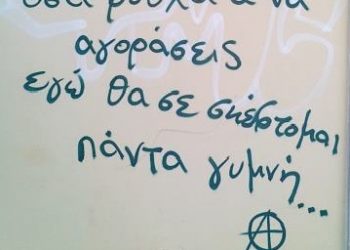 όσα ρούχα & να
αγοράσεις
εγώ θα σε σκέφτομαι
πάντα γυμνή...